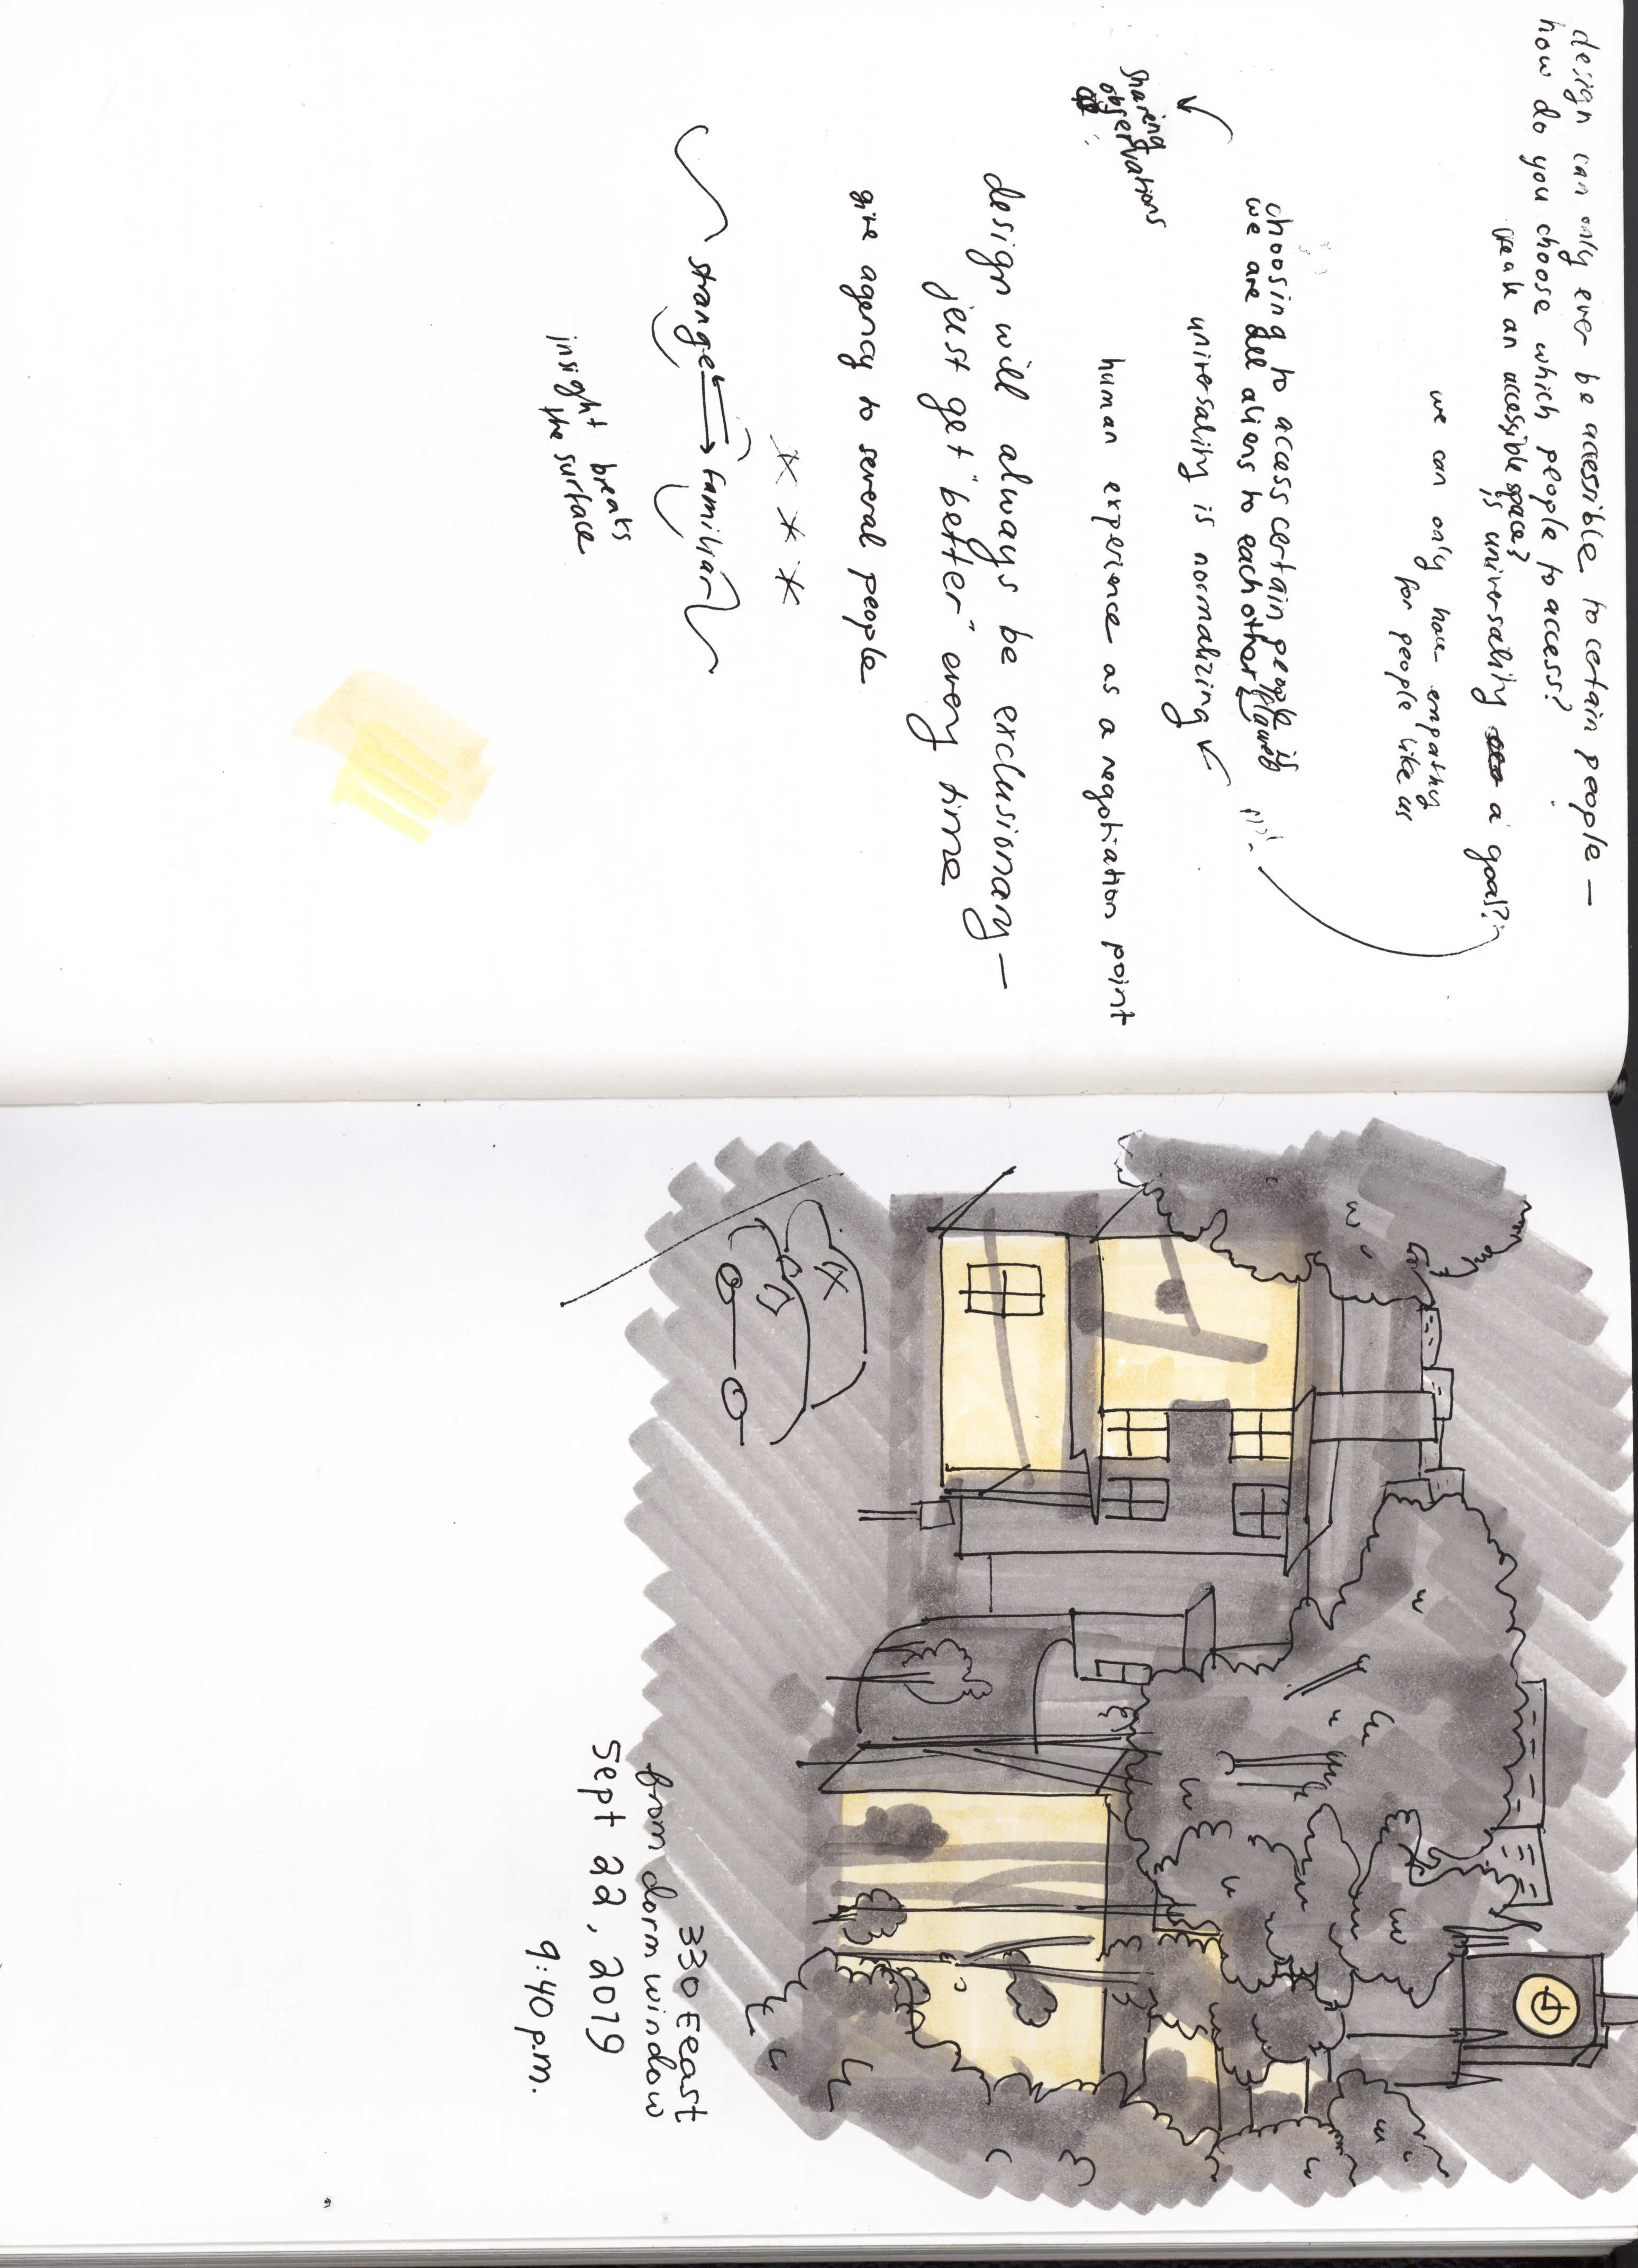 design can only ever be accessible to certain people —
how do you choose which people to access?
an accessible space?
is universality a goal?
we can only have empathy
for people like us
choosing to access certain people is flawed
we are all aliens to each other
universality is normalizing
sharing
observations
human experience as a negotiation point
design will always be exclusionary —
just get "better" every time
give agency to several people
strange familiar
insight breaks
the surface
330 Eeast
from dorm window
Sept 22, 2019
9:40 p.m.